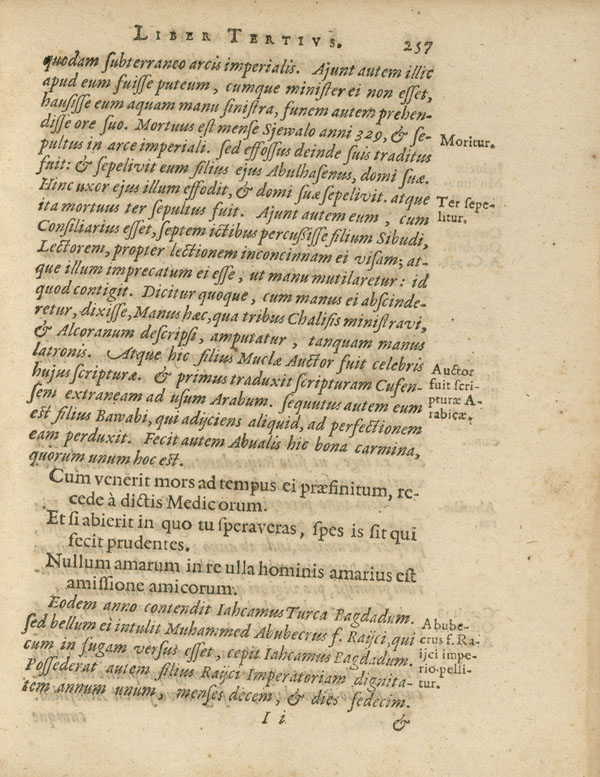 LIBER TERTIVS. 257
quodam subterraneo arcis imperialis. Ajunt autem illic
apud eum fuisse puteum, cumque minister ei non esset,
hausisse eum aquam manu sinistra, funem autem prehen-
disse ore suo. Mortuus est mense Sjewalo anni 329, & se-
pultus in arce imperiali. sed effossus deinde suis traditus
fuit: & sepelivit eum filius ejus Abulhasenus, domi suæ.
Hinc uxor ejus illum effodit, & domi suæ sepelivit. atque
ita mortuus ter sepultus fuit. Ajunt autem eum, cum
Consiliarius esset, septem ictibus percußisse filium Sibudi,
Lectorem, propter lectionem inconcinnam ei visam; at-
que illum imprecatum ei esse, ut manu mutilaretur: id
quod contigit. Dicitur quoque, cum manus ei abscinde-
retur, dixisse, Manus hæc, qua tribus Chalifis ministravi,
& Alcoranum descripsi, amputatur, tanquam manus
latronis. Atque hic filius Muclæ Auctor fuit celebris
hujus scripturæ. & primus traduxit scripturam Cufen-
sem extraneam ad usum Arabum. sequutus autem eum
est filius Bawabi, qui adijciens aliquid, ad perfectionem
eam perduxit. Fecit autem Abualis hic bona carmina,
quorum unum hoc est.
Cum venerit mors ad tempus ei præfinitum, re-
cede à dictis Medicorum.
Et si abierit in quo tu speraveras, spes is sit qui
fecit prudentes.
Nullum amarum in re ulla hominis amarius est
amissione amicorum.
Eodem anno contendit Iahcamus Turca Bagdadum.
sed bellum ei intulit Muhammed Abubecrus f. Raijci, qui
cum in fugam versus esset, cepit Iahcamus Bagdadum.
Possederat autem filius Raijci Imperatoriam dignita-
tem annum unum, menses decem, & dies sedecim.
I i &
Moritur.
Ter sepe-
litur.
Auctor
fuit scri-
pturæ A-
rabicæ.
Abube-
crus f. Ra-
ijci impe-
rio pelli-
tur.